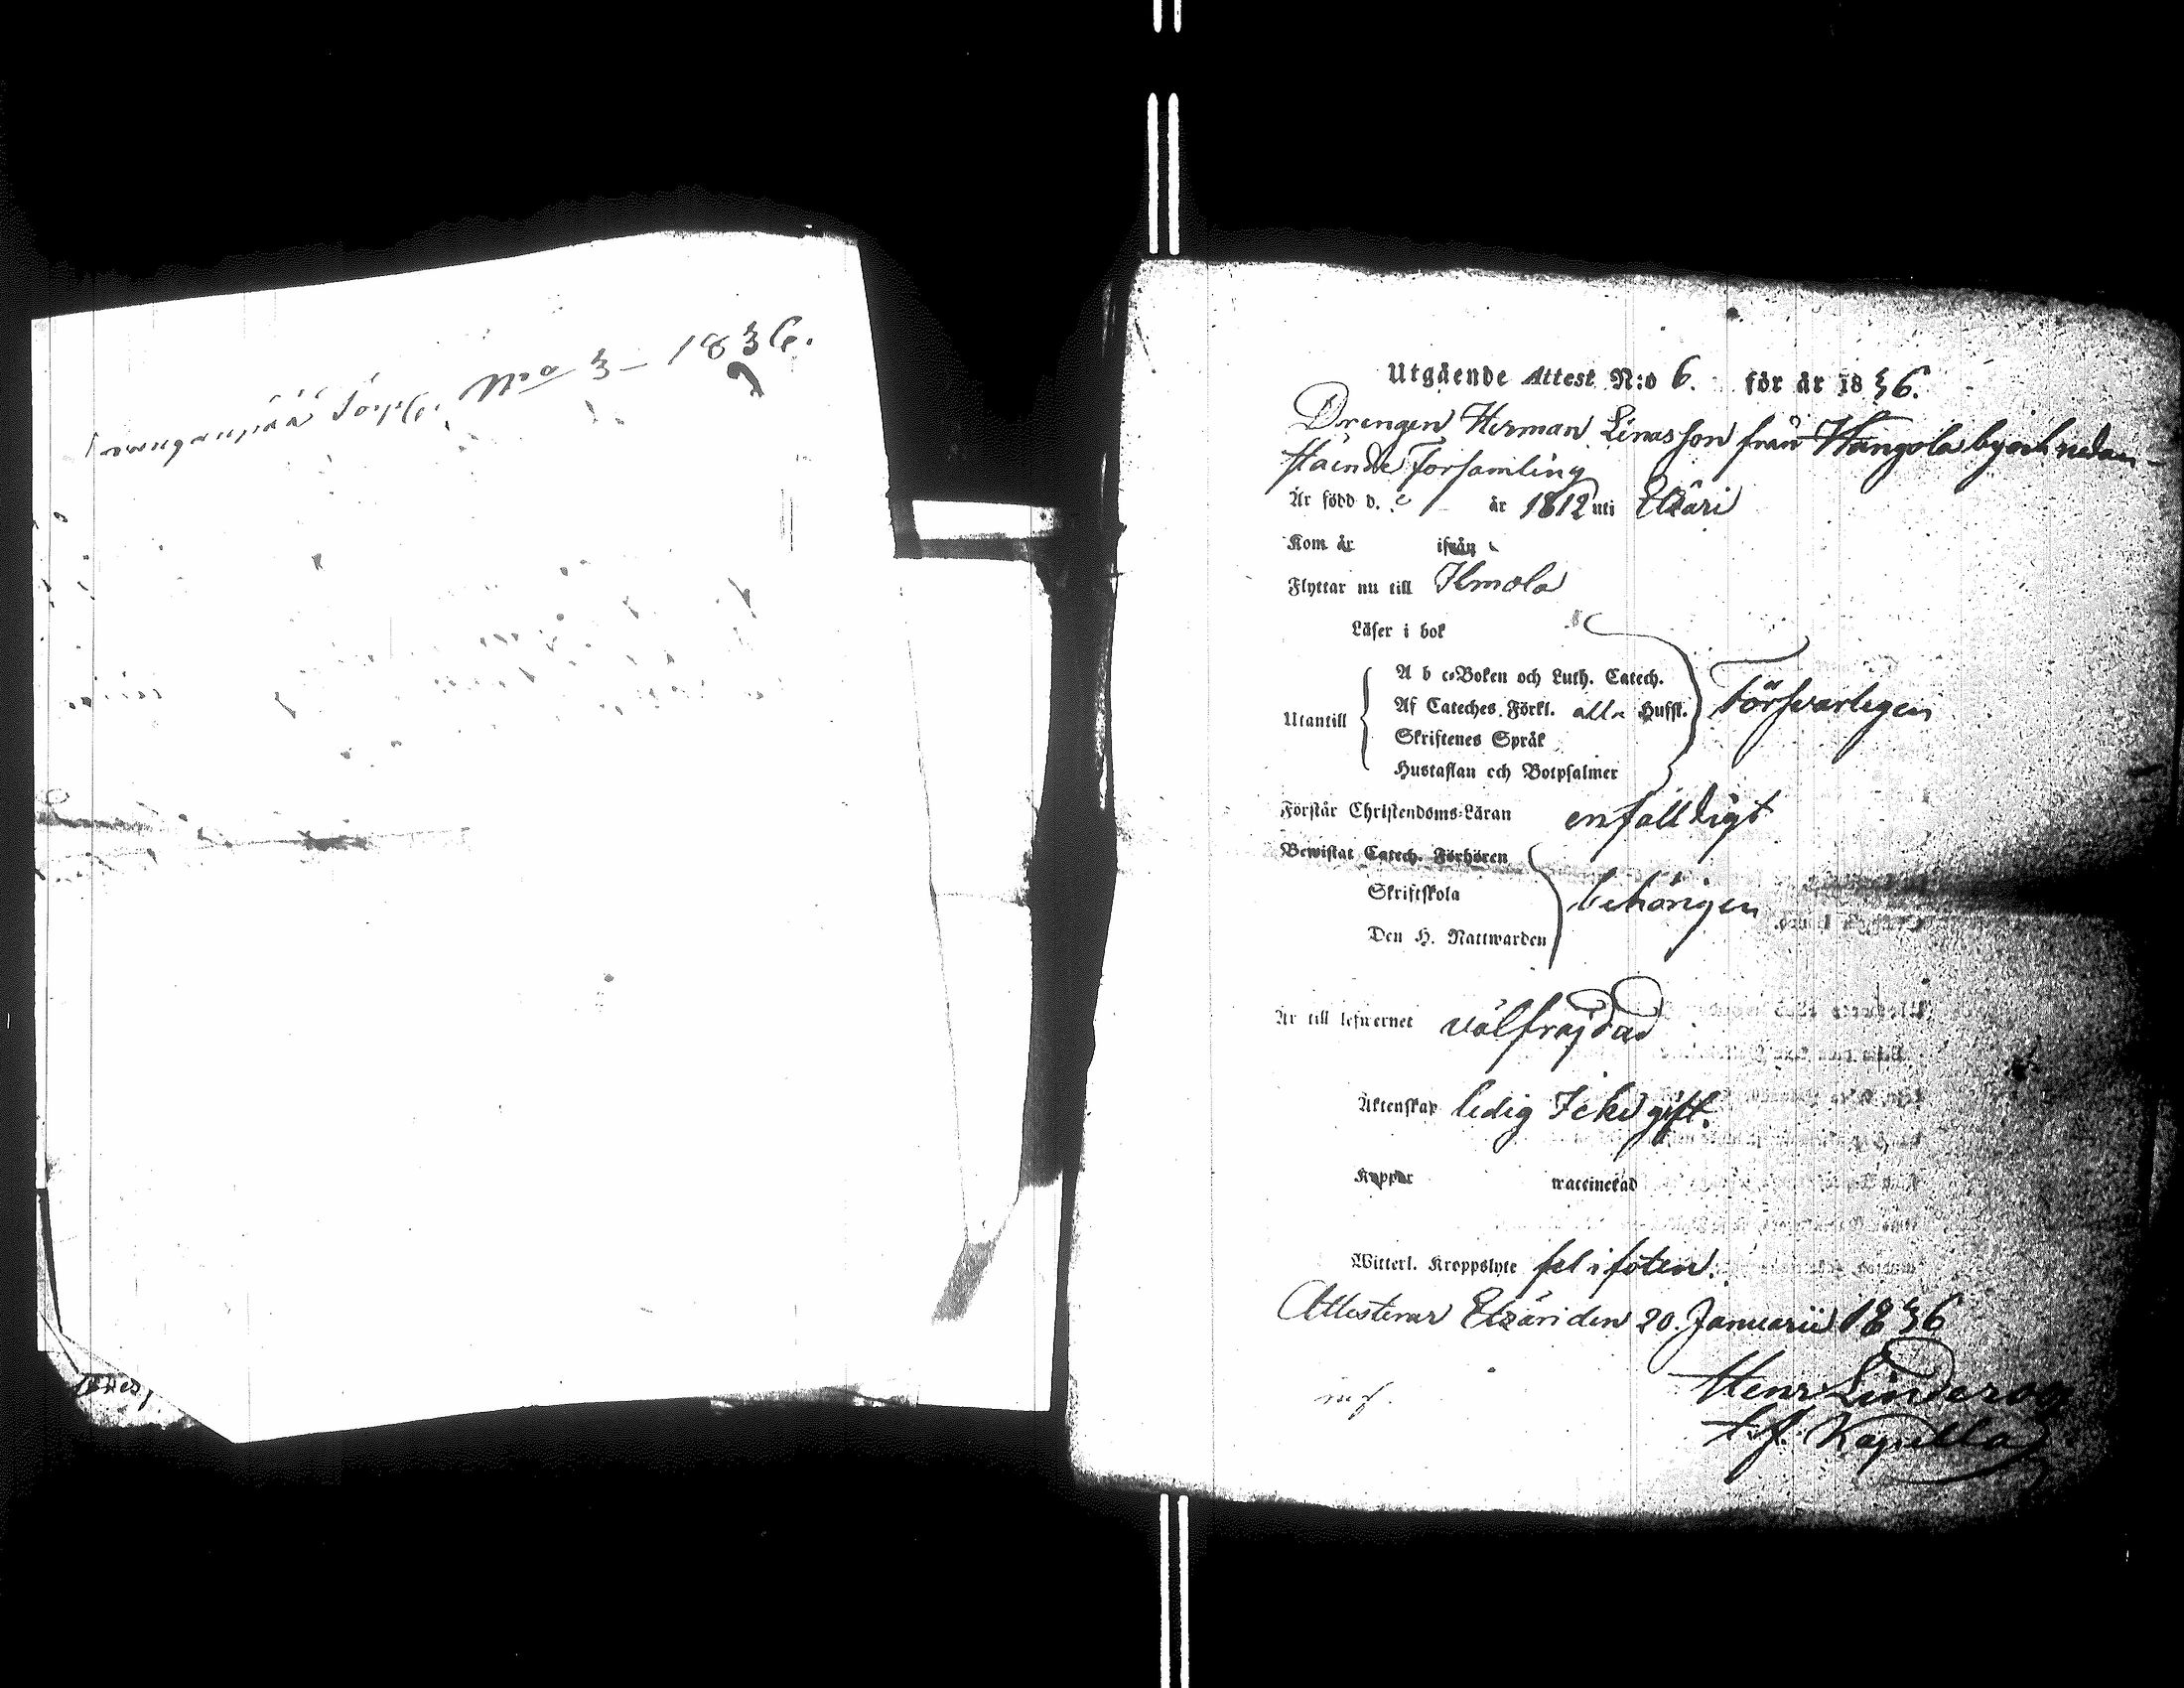 Torp No 3 - 1836.
Utgående Attest N:o 6. för år 1836.
Drengen Herman Linasson från Hangola by och nedan-
stående Församling
Är född d. år 1812 uti Etzäri
Kom år ifrån
Flyttar nu till Ilmola
Läser i bok
A b c-Boken och Luth. Catech.
Utantill Af Cateches. Förkl. alla Hufst. Försvarligen
Skriftenes Språk
Hustaflan och Botpsalmer
Förstår Christendoms-Läran enfalldigt
Bewistat Catech. Förhören
Skriftskola behörigen
Den H. Nattwarden
Är till lefwernet välfräjdad
Äktenskap ledig Icke gift.
Koppor waccinerad
Witterl. Kroppslyte fel i foten.
Attesterar Etzäri den 20. Januarii 1836
Henr Linderoos
t.f. Kapella